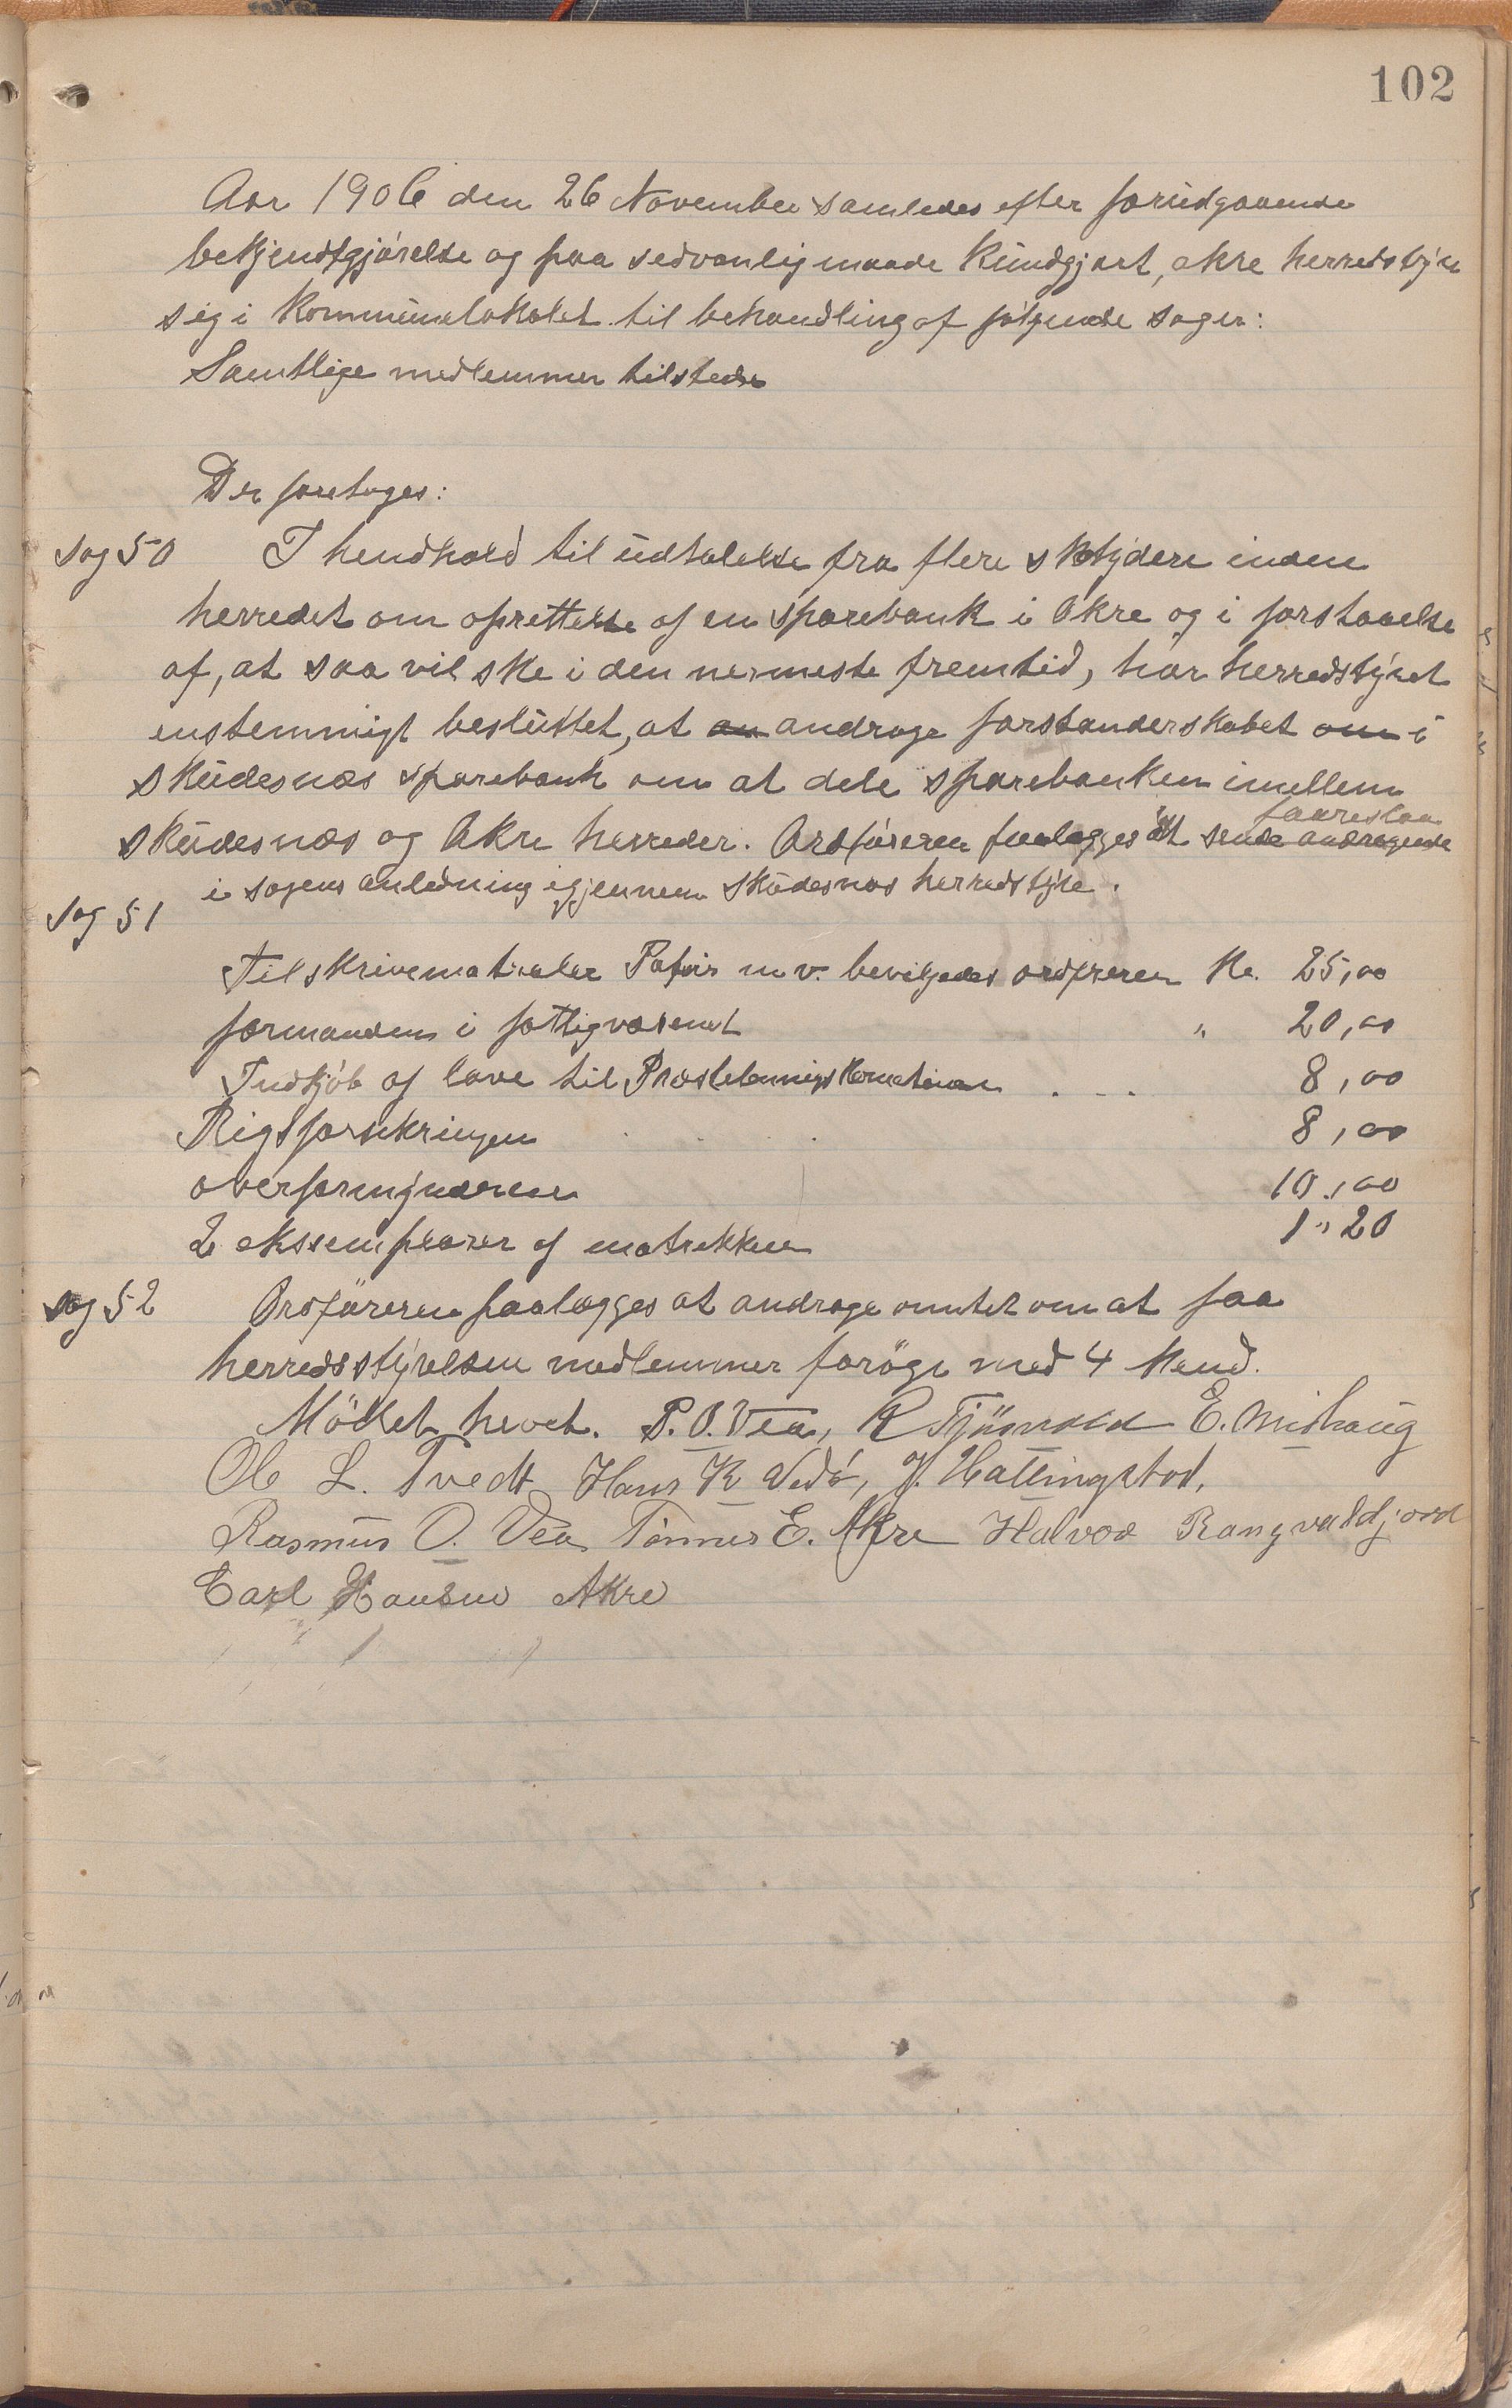 102
Aar 1906 den 26 November samledes efter forudgaaende
bekjendtgjörelse og paa sedvanlig maade kundgjort, akre herredstyre
sig i kommunelokalet til behandling af fölgende sager:
Samtlige medlemmer tilstede
Der foretoges:
Sag 50 I hendhold til udtalelse fra flere skatydere inden
herredet om oprettelse af en sparebank i Akre og i forstaaelse
af, at saa vil ske i den nermeste fremtid, har herredstyret
enstemmigt besluttet, at an androge forstanderskabet om i
Skudesnæs sparebank om at dele sparebanken imellem
faarestaa
Skudesnæs og Akre herreder. Ordföreren paalegges at sende andragende
i sagens anledning igjennem Skudesnæs herredstyre.
Sag 51
Til skrivematrialer Papir m v. bevilgedes ordföreren Kr. 25,00
formanden i fattigvæsenet " 20,00
Indkjöb af love til 8,00
Rigsforsikringen 8,00
overformynderen 10,00
2 eksemplarer af matrikkelen 1,20
Sag 52 Ordföreren paalægges at androge amtet om at faa
herredsstyrelsen medlemmer foröge med 4 Mend.
Mödet hevet. P. O. Vea, R Tjösvold E. Mishaug
Ole L. Tvedt Hans K Vedö, J. Hattingstad,
Rasmus O. Vea Tönnes E. Akre Halvor Rangvaldjord
Carl Hansen Akre